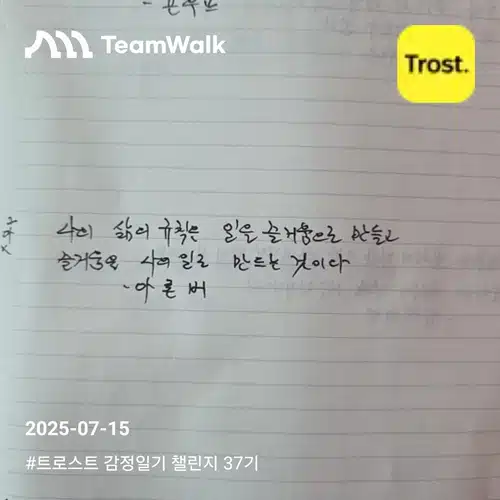 TeamWalk
Trost.
나의 삶의 규칙은 일을 즐거움으로 만들고
즐거움을 나의 일로 만드는 것이다
- 아론 버
2025-07-15
#트로스트 감정일기 챌린지 37기